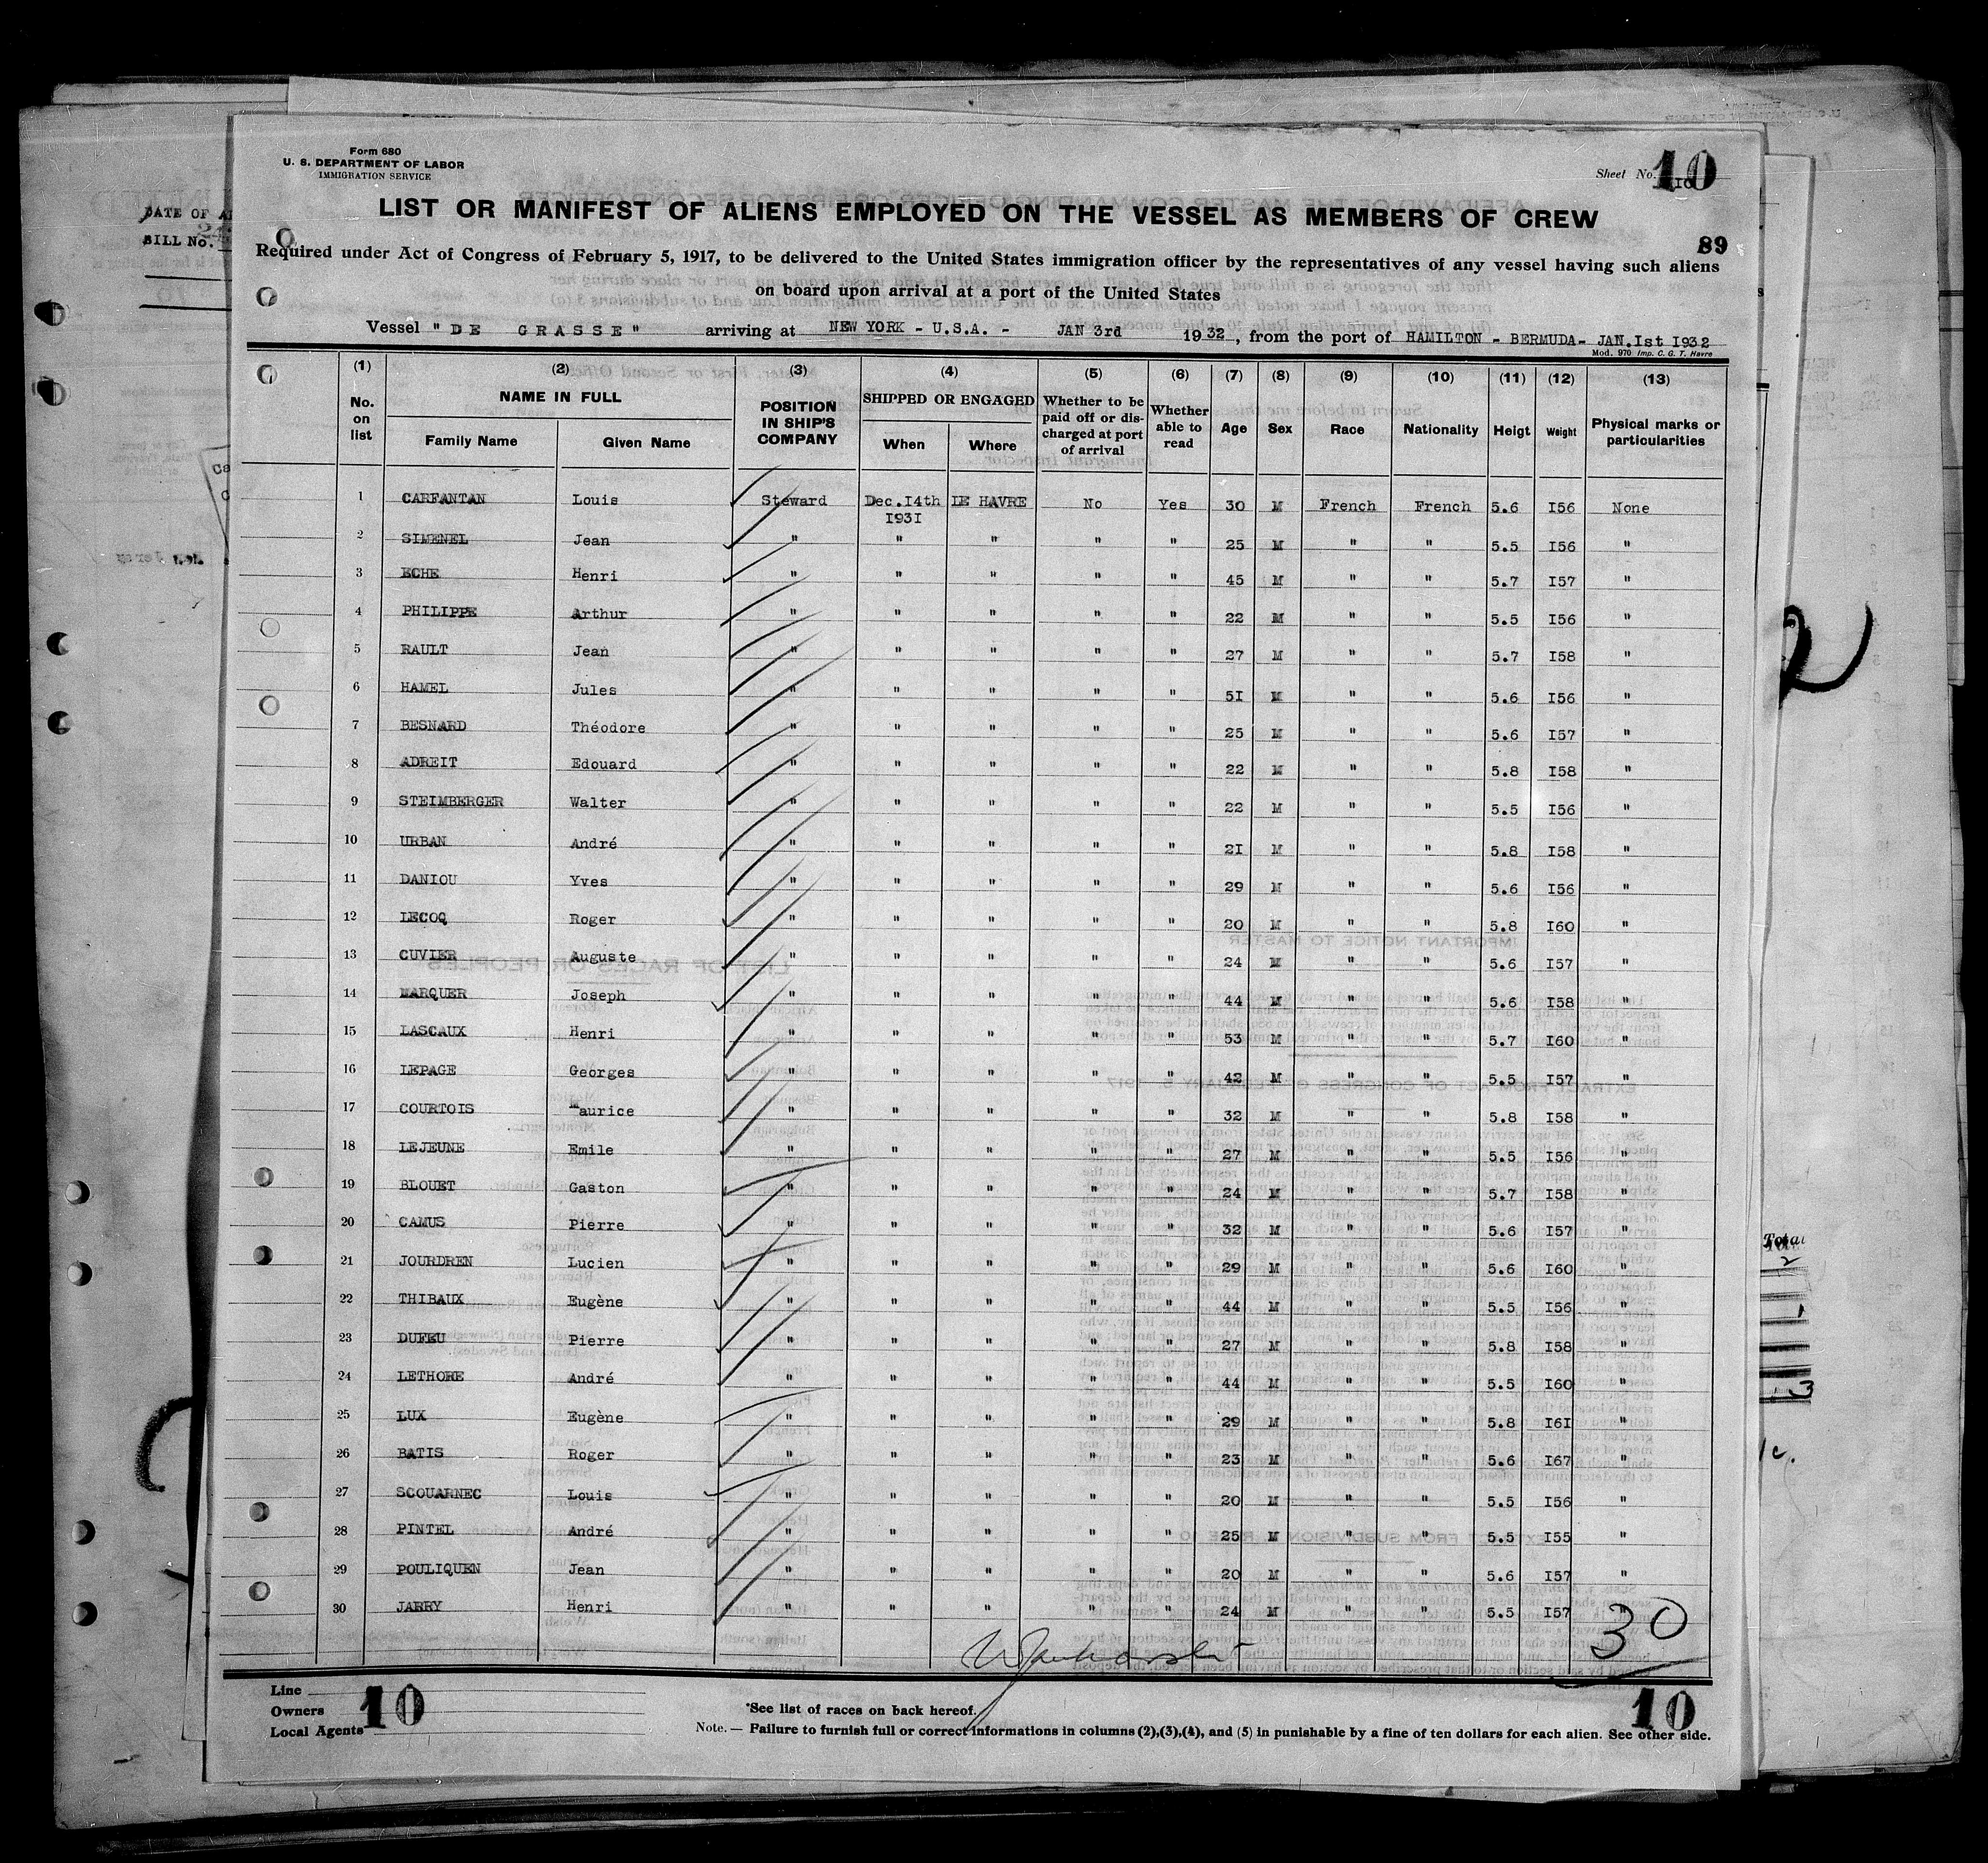 Form 680
U. S. DEPARTMENT OF LABOR
IMMIGRATION SERVICE
Sheet No. 10
LIST OR MANIFEST OF ALIENS EMPLOYED ON THE VESSEL AS MEMBERS OF CREW
89
Required under Act of Congress of February 5, 1917, to be delivered to the United States immigration officer by the representatives of any vessel having such aliens
on board upon arrival at a port of the United States
Vessel "DE GRASSE" arriving at NEW YORK - U.S.A. - JAN 3rd 1932, from the port of HAMILTON - BERMUDA- JAN.Ist I932
Mod. 970 Imp. C. G. T. Havre
(1) (2) (3) (4) (5) (6) (7) (8) (9) (10) (11) (12) (13)
No. on list NAME IN FULL Family Name Given Name POSITION IN SHIP'S COMPANY SHIPPED OR ENGAGED When Where Whether to be paid off or discharged at port of arrival Whether able to read Age Sex Race Nationality Heigt Weight Physical marks or particularities
1 CARFANTAN Louis Steward Dec.I4th I93I LE HAVRE No Yes 30 M French French 5.6 I56 None
2 SIMENEL Jean " " " " " 25 M " " 5.5 I56 "
3 ECHE Henri " " " " " 45 M " " 5.7 I57 "
4 PHILIPPE Arthur " " " " " 22 M " " 5.5 I56 "
5 RAULT Jean " " " " " 27 M " " 5.7 I58 "
6 HAMEL Jules " " " " " 5I M " " 5.6 I56 "
7 BESNARD Théodore " " " " " 25 M " " 5.6 I57 "
8 ADREIT Edouard " " " " " 22 M " " 5.8 I58 "
9 STEIMBERGER Walter " " " " " 22 M " " 5.5 I56 "
10 URBAN André " " " " " 2I M " " 5.8 I58 "
11 DANIOU Yves " " " " " 29 M " " 5.6 I56 "
12 LECOQ Roger " " " " " 20 M " " 5.8 I60 "
13 CUVIER Auguste " " " " " 24 M " " 5.6 I57 "
14 MARQUER Joseph " " " " " 44 M " " 5.6 I58 "
15 LASCAUX Henri " " " " " 53 M " " 5.7 I60 "
16 LEPAGE Georges " " " " " 42 M " " 5.5 I57 "
17 COURTOIS Maurice " " " " " 32 M " " 5.8 I58 "
18 LEJEUNE Emile " " " " " 27 M " " 5.5 I56 "
19 BLOUET Gaston " " " " " 24 M " " 5.7 I58 "
20 CAMUS Pierre " " " " " 32 M " " 5.6 I57 "
21 JOURDREN Lucien " " " " " 29 M " " 5.6 I60 "
22 THIBAUX Eugène " " " " " 44 M " " 5.5 I56 "
23 DUFEU Pierre " " " " " 27 M " " 5.8 I58 "
24 LETHORE André " " " " " 44 M " " 5.5 I60 "
25 LUX Eugène " " " " " 29 M " " 5.8 I6I "
26 BATIS Roger " " " " " 23 M " " 5.6 I67 "
27 SCOUARNEC Louis " " " " " 20 M " " 5.5 I56 "
28 PINTEL André " " " " " 25 M " " 5.5 I55 "
29 POULIQUEN Jean " " " " " 20 M " " 5.6 I57 "
30 JARRY Henri " " " " " 24 M " " 5.5 I57 "
30
Line
Owners
Local Agents
10
*See list of races on back hereof.
10
Note. — Failure to furnish full or correct informations in columns (2),(3),(4), and (5) in punishable by a fine of ten dollars for each alien. See other side.
DATE OF
BILL No.
2
Total